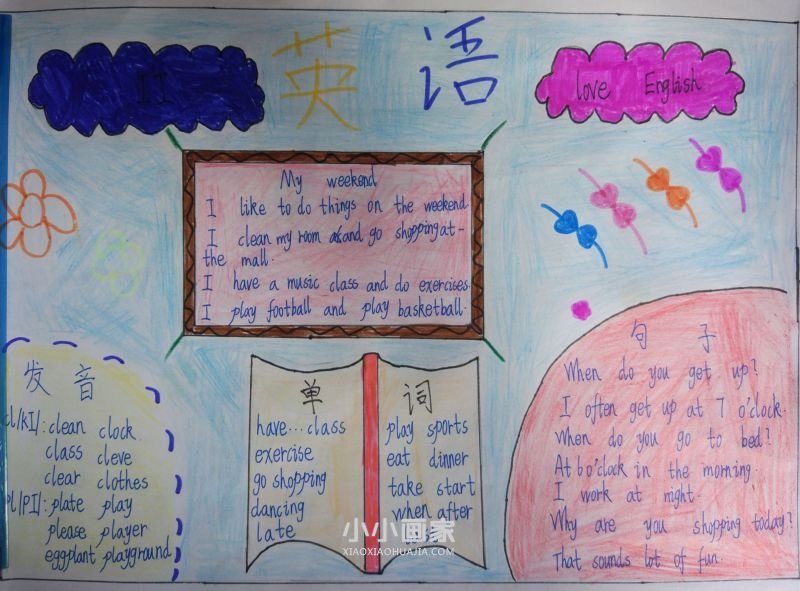 II
英语
love English
My weekend
I like to do things on the weekend
I clean my room and go shopping at-
the mall.
I have a music class and do exercises.
I play football and play basketball.
发音
cl/kI/: clean clock
class cleve
clear clothes
pl/pI/: plate play
please player
eggplant playground
单词
have...class
exercise
go shopping
dancing
late
play sports
eat dinner
take start
when after
句子
When do you get up?
I often get up at 7 o'clock.
When do you go to bed?
At 6 o'clock in the morning.
I work at night.
Why are you shopping today?
That sounds lot of fun.
小小画家
XIAOXIAOHUAJIA.COM